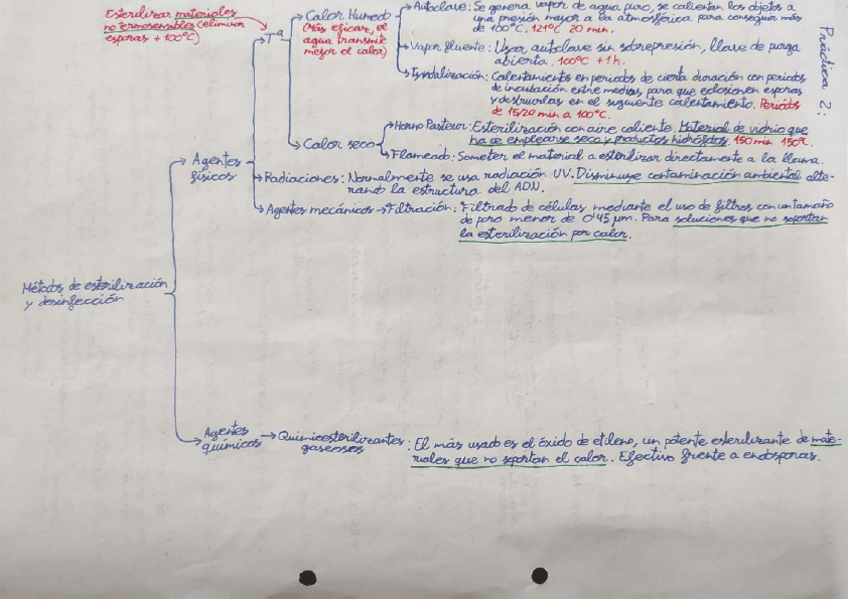 Práctica 2:
Esterilizar materiales
no termosensibles (eliminar
esporas + 100°C)
Tª
Calor Humedo
(Más eficaz, el
agua transmite
mejor el calor)
Autoclave: Se genera vapor de agua puro, se calientan los objetos a
una presión mayor a la atmosférica para conseguir más
de 100°C. 121°C 20 min.
Vapor fluente: Usar autoclave sin sobrepresión, llave de purga
abierta. 100°C + 1h.
Tyndalización: Calentamientos en periodos de cierta duración con periodos
de incubación entre medias, para que eclosionen esporas
y destruirlas en el siguiente calentamiento. Periodos
de 15/20 min a 100°C.
Calor seco
Horno Pasteur: Esterilización con aire caliente. Material de vidrio que
ha de emplearse seco y productos hidrófobos. 150 min 150°C.
Flameado: Someter el material a esterilizar directamente a la llama.
Agentes
físicos
Radiaciones: Normalmente se usa radiación UV. Disminuye contaminación ambiental alte-
rando la estructura del ADN.
Agentes mecánicos → Filtración: Filtrado de células mediante el uso de filtros con un tamaño
de poro menor de 0'45 µm. Para soluciones que no soportan
la esterilización por calor.
Métodos de esterilización
y desinfección
Agentes
químicos
Quimioesterilizantes
gaseosos
: El más usado es el óxido de etileno, un potente esterilizante de mate-
riales que no soportan el calor. Efectivo frente a endosporas.